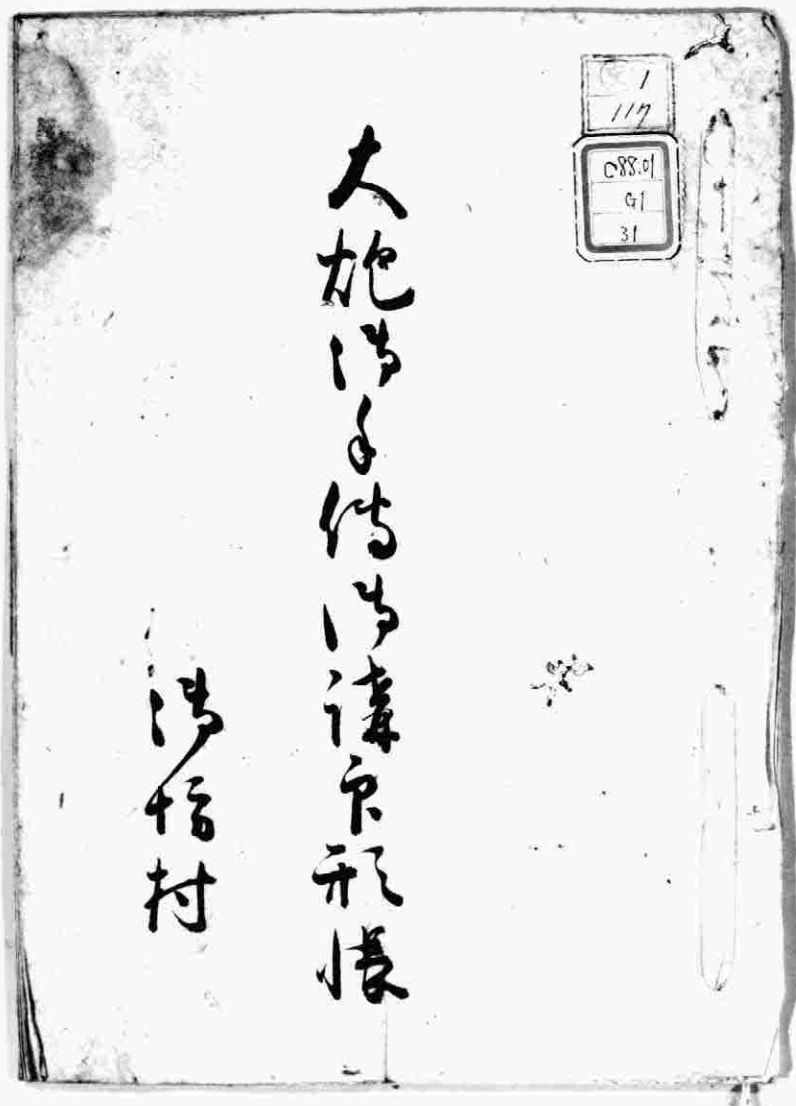 1
117
C88.01
G1
31
大炮御手傳御講印形帳
村